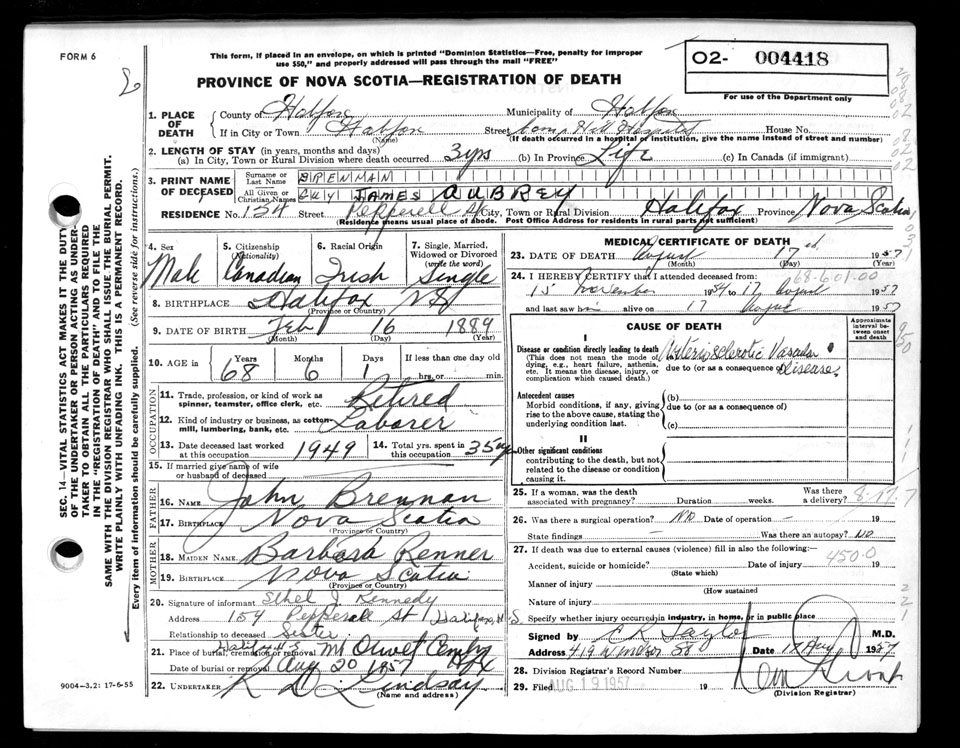 FORM 6
This form, if placed in an envelope, on which is printed "Dominion Statistics—Free, penalty for improper
use $50," and properly addressed will pass through the mail "FREE"
O2- 004418
PROVINCE OF NOVA SCOTIA—REGISTRATION OF DEATH
For use of the Department only
1. PLACE OF DEATH
County of Halifax Municipality of Halifax
If in City or Town Halifax Street Camp Hill Hospital House No.
(Name) (If death occurred in a hospital or institution, give the name instead of street and number)
2. LENGTH OF STAY (in years, months and days)
(a) In City, Town or Rural Division where death occurred 3 yrs (b) In Province Life (c) In Canada (if immigrant)
3. PRINT NAME OF DECEASED
Surname or Last Name BRENNAN
All Given or Christian Names GUY JAMES AUBREY
RESIDENCE No. 154 Street Pepperell St City, Town or Rural Division Halifax Province Nova Scotia
(Residence means usual place of abode. Post Office Address for residents in rural parts not sufficient)
4. Sex Male
5. Citizenship (Nationality) Canadian
6. Racial Origin Irish
7. Single, Married, Widowed or Divorced (write the word) Single
8. BIRTHPLACE Halifax NS
(Province or Country)
9. DATE OF BIRTH Feb 16 1889
(Month) (Day) (Year)
10. AGE in Years 68 Months 6 Days 1 If less than one day old
hrs or min.
OCCUPATION
11. Trade, profession, or kind of work as spinner, teamster, office clerk, etc. Retired
12. Kind of industry or business, as cotton-mill, lumbering, bank, etc. Laborer
13. Date deceased last worked at this occupation 1949
14. Total yrs. spent in this occupation 35 yrs
15. If married give name of wife or husband of deceased
FATHER
16. NAME John Brennan
17. BIRTHPLACE Nova Scotia
(Province or Country)
MOTHER
18. MAIDEN NAME Barbara Renner
19. BIRTHPLACE Nova Scotia
(Province or Country)
20. Signature of informant Ethel J Kennedy
Address 154 Pepperell St Halifax, N.S
Relationship to deceased Sister
21. Place of burial, cremation or removal Mt Olivet Cemty Hfx
Date of burial or removal Aug 20 1957
22. UNDERTAKER Lindsay
(Name and address)
MEDICAL CERTIFICATE OF DEATH
23. DATE OF DEATH August 17 1957
(Month) (Day) (Year)
24. I HEREBY CERTIFY that I attended deceased from:
68-601.00
15 November 1954 to 17 August 1957
and last saw him alive on 17 August 1957
CAUSE OF DEATH
Approximate interval between onset and death
I
Disease or condition directly leading to death
(This does not mean the mode of dying, e.g., heart failure, asthenia, etc. It means the disease, injury, or complication which caused death.)
Arteriosclerotic Vascular Disease
due to (or as a consequence of)
Antecedent causes
Morbid conditions, if any, giving rise to the above cause, stating the underlying condition last.
(b)
due to (or as a consequence of)
(c)
II
Other significant conditions
contributing to the death, but not related to the disease or condition causing it.
25. If a woman, was the death associated with pregnancy? Duration weeks. Was there a delivery?
26. Was there a surgical operation? No Date of operation — 19
State findings — Was there an autopsy? No
27. If death was due to external causes (violence) fill in also the following:—
450.0
Accident, suicide or homicide? Date of injury 19
(State which)
Manner of injury
(How sustained)
Nature of injury
Specify whether injury occurred in industry, in home, or in public place
Signed by Taylor M.D.
Address 419 Windsor St Date 18 Aug 1957
28. Division Registrar's Record Number
29. Filed AUG 19 1957 19
(Division Registrar)
9004-3.2: 17-6-55
SEC. 14—VITAL STATISTICS ACT MAKES IT THE DUTY
OF THE UNDERTAKER OR PERSON ACTING AS UNDER-
TAKER TO OBTAIN ALL THE PARTICULARS REQUIRED
IN THE "REGISTRATION OF DEATH" AND TO FILE THE
SAME WITH THE DIVISION REGISTRAR WHO SHALL ISSUE THE BURIAL PERMIT.
WRITE PLAINLY WITH UNFADING INK. THIS IS A PERMANENT RECORD.
Every item of information should be carefully supplied. (See reverse side for instructions.)